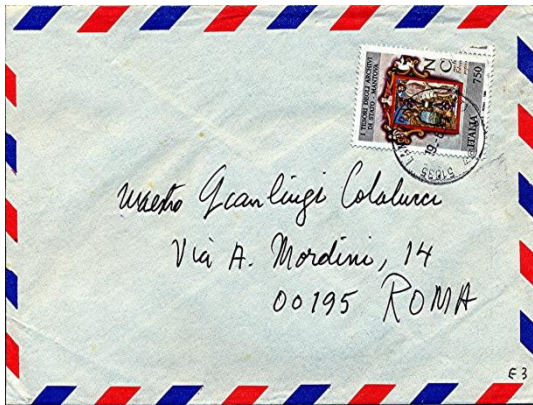 I TESORI DEGLI ARCHIVI
DI STATO - MANTOVA
750
ITALIA
51035
Maestro Gianluigi Colalucci
Via A. Mordini, 14
00195 ROMA
E3